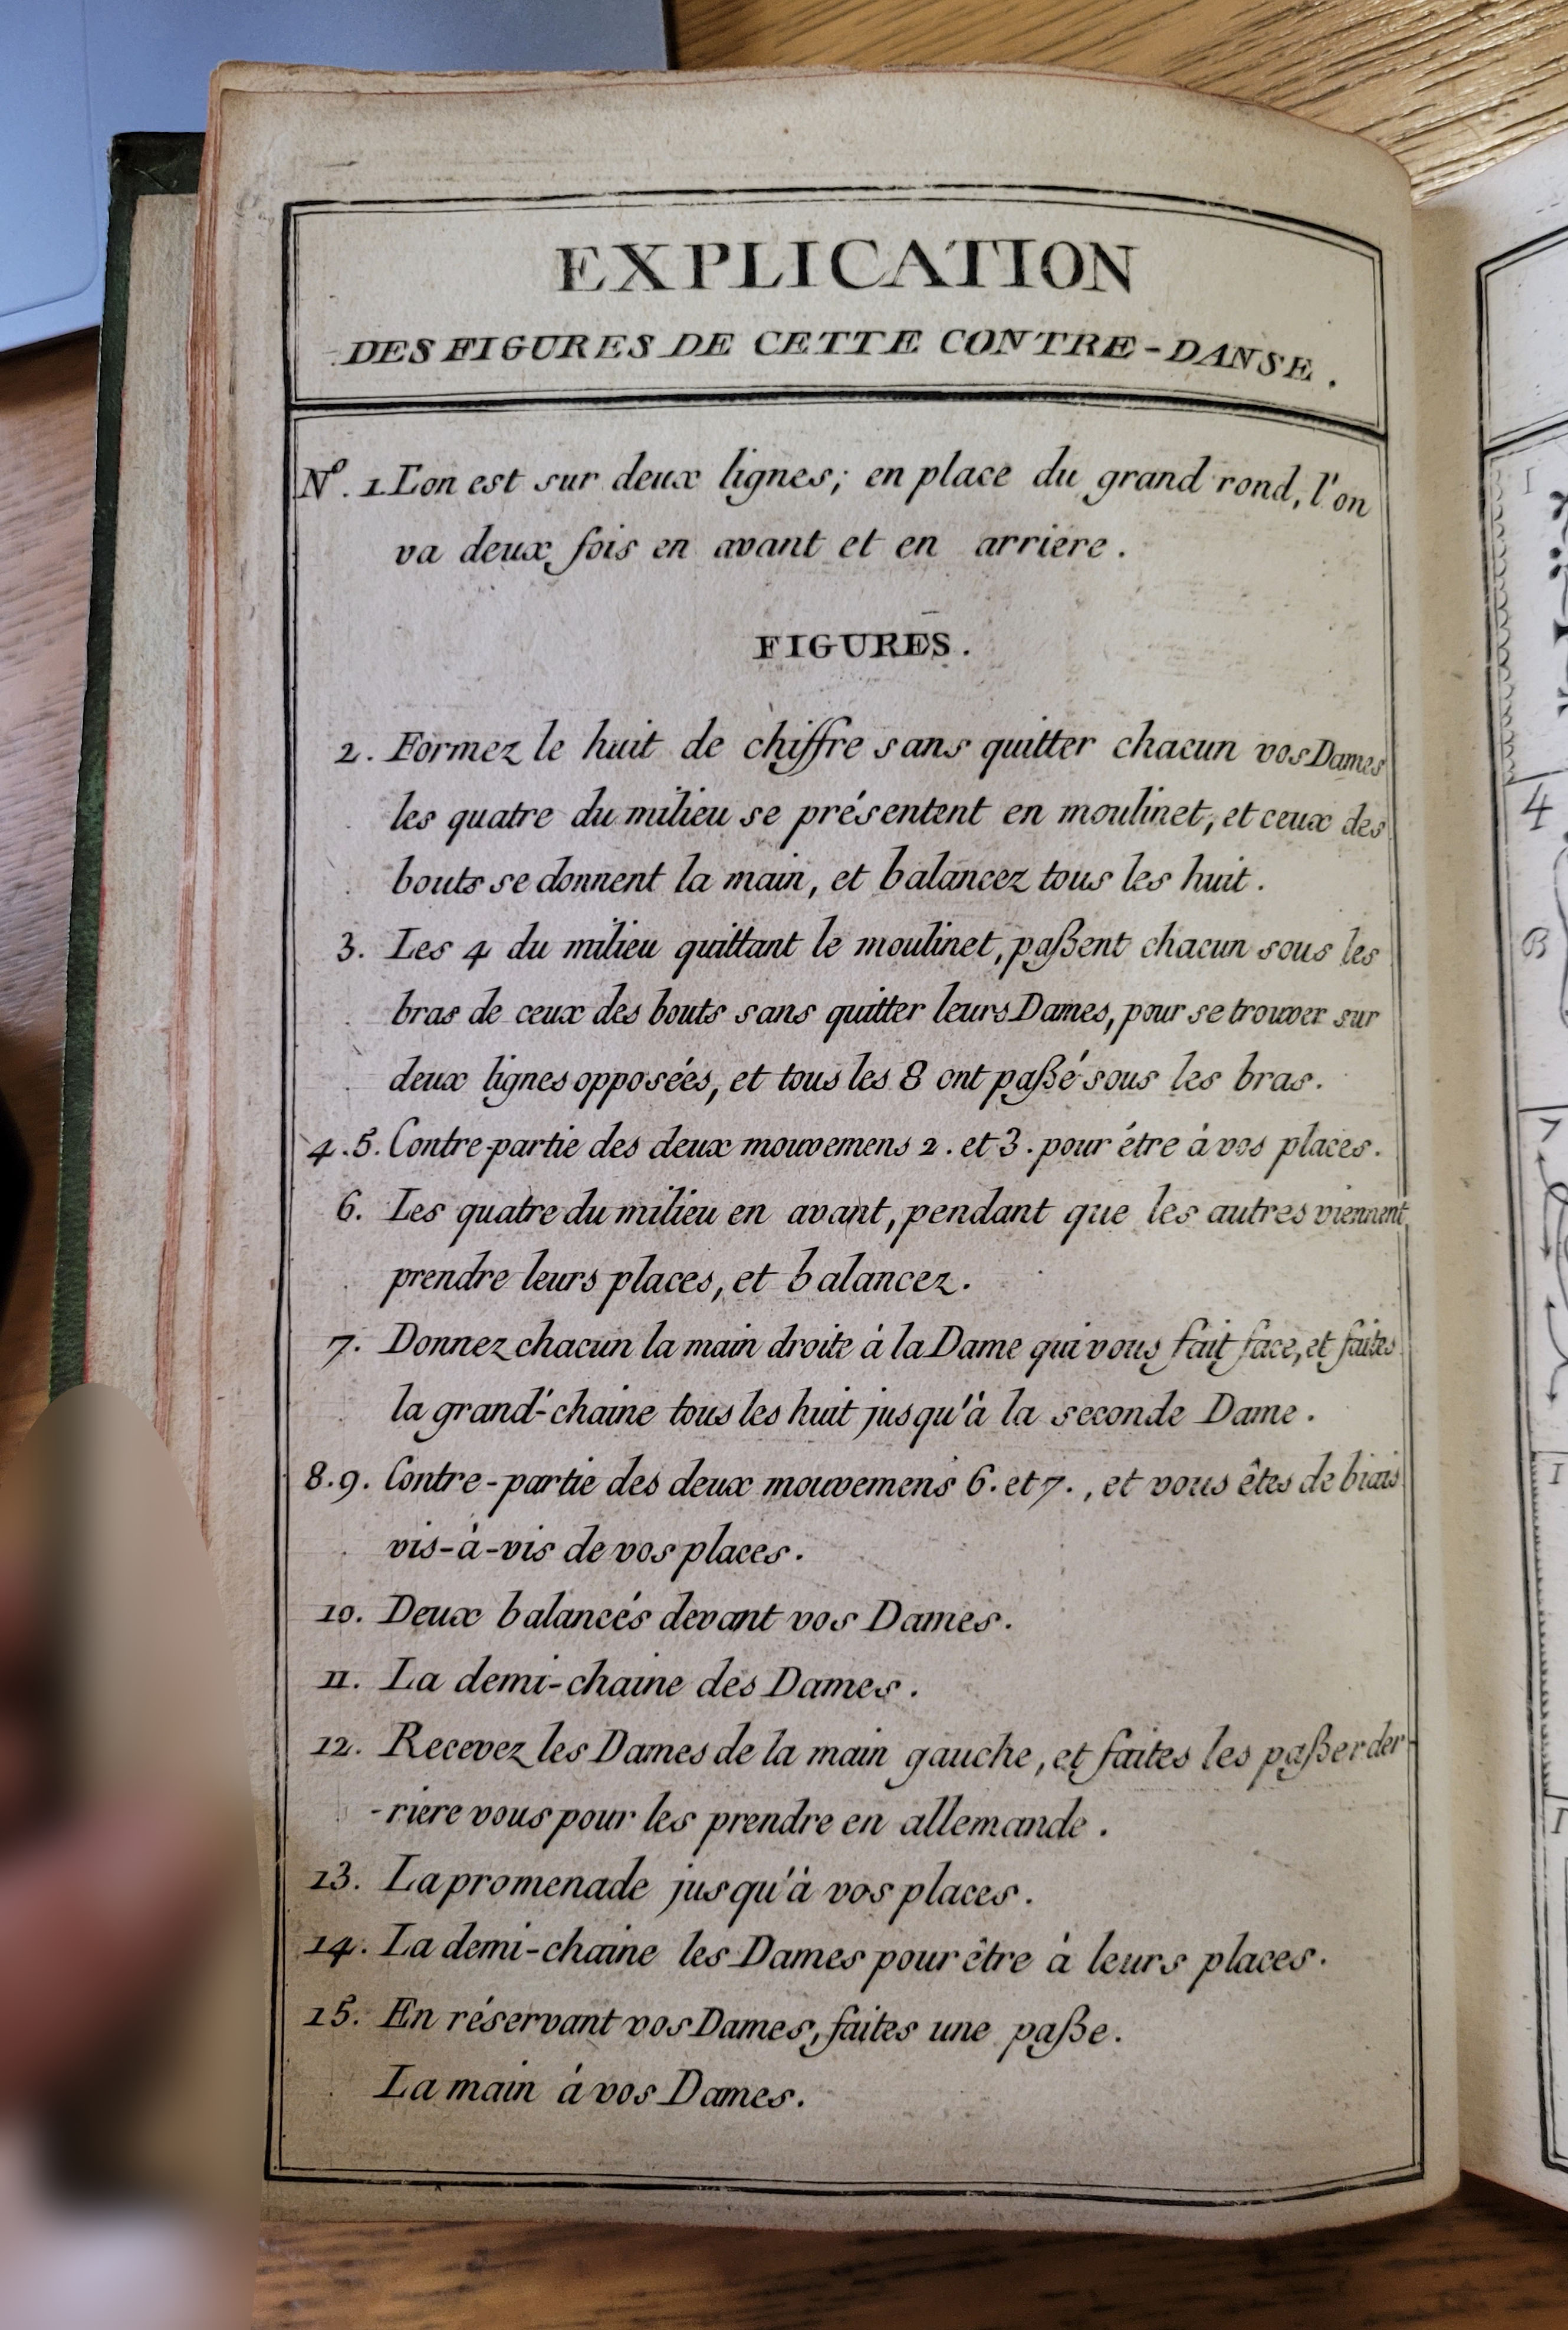 EXPLICATION
DES FIGURES DE CETTE CONTRE-DANSE.
Nº. 1 L'on est sur deux lignes; en place du grand rond, l'on
va deux fois en avant et en arriere.
FIGURES.
2. Formez le huit de chiffre sans quitter chacun vos Dames
les quatre du milieu se présentent en moulinet, et ceux des
bouts se donnent la main, et balancez tous les huit.
3. Les 4 du milieu quittant le moulinet, paßent chacun sous les
bras de ceux des bouts sans quitter leurs Dames, pour se trouver sur
deux lignes opposées, et tous les 8 ont paßé sous les bras.
4.5. Contre-partie des deux mouvemens 2. et 3. pour étre à vos places.
6. Les quatre du milieu en avant, pendant que les autres viennent
prendre leurs places, et balancez.
7. Donnez chacun la main droite à la Dame qui vous fait face, et faites
la grand'-chaine tous les huit jusqu'à la seconde Dame.
8.9. Contre-partie des deux mouvemens 6. et 7., et vous êtes de biais
vis-à-vis de vos places.
10. Deux balancés devant vos Dames.
11. La demi-chaine des Dames.
12. Recevez les Dames de la main gauche, et faites les paßer der-
-riere vous pour les prendre en allemande.
13. La promenade jusqu'à vos places.
14. La demi-chaine les Dames pour être à leurs places.
15. En réservant vos Dames, faites une paße.
La main à vos Dames.
1
4
B
7